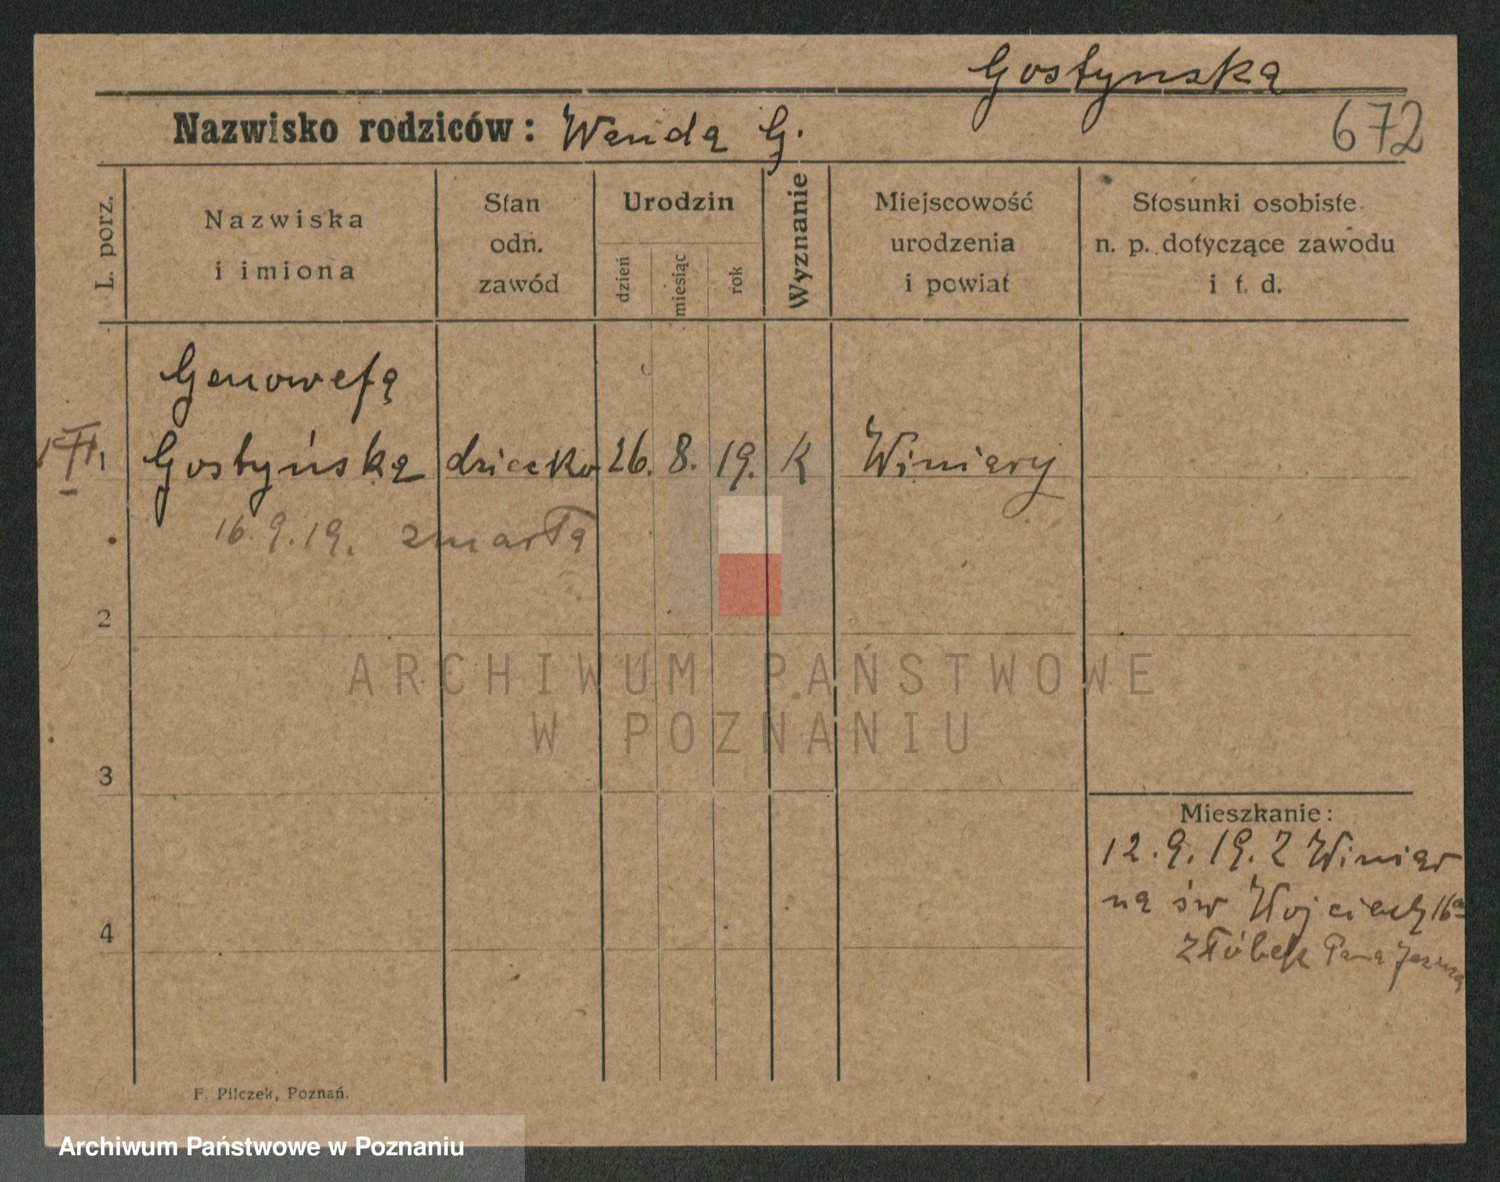 Gostynska
Nazwisko rodziców: Wanda G.
672
L. porz.
Nazwiska
i imiona
Stan
odn.
zawód
Urodzin
dzień
miesiąc
rok
Wyznanie
Miejscowość
urodzenia
i powiat
Stosunki osobiste
n. p. dotyczące zawodu
i t. d.
Genowefa
1 Gostyńska dziecko 26. 8. 19. K Winiary
16.9.19. zmarła
2
ARCHIWUM PAŃSTWOWE
W POZNANIU
3
Mieszkanie:
12.9.19. Z Winiar
na św Wojciech 16a
4
żłóbek Pana Jezusa
F. Pilczek, Poznań.
Archiwum Państwowe w Poznaniu